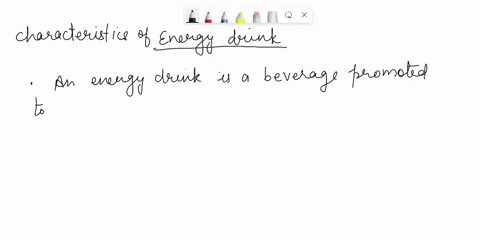 characteristice of Energy drink
. An energy drink is a beverage promoted
to